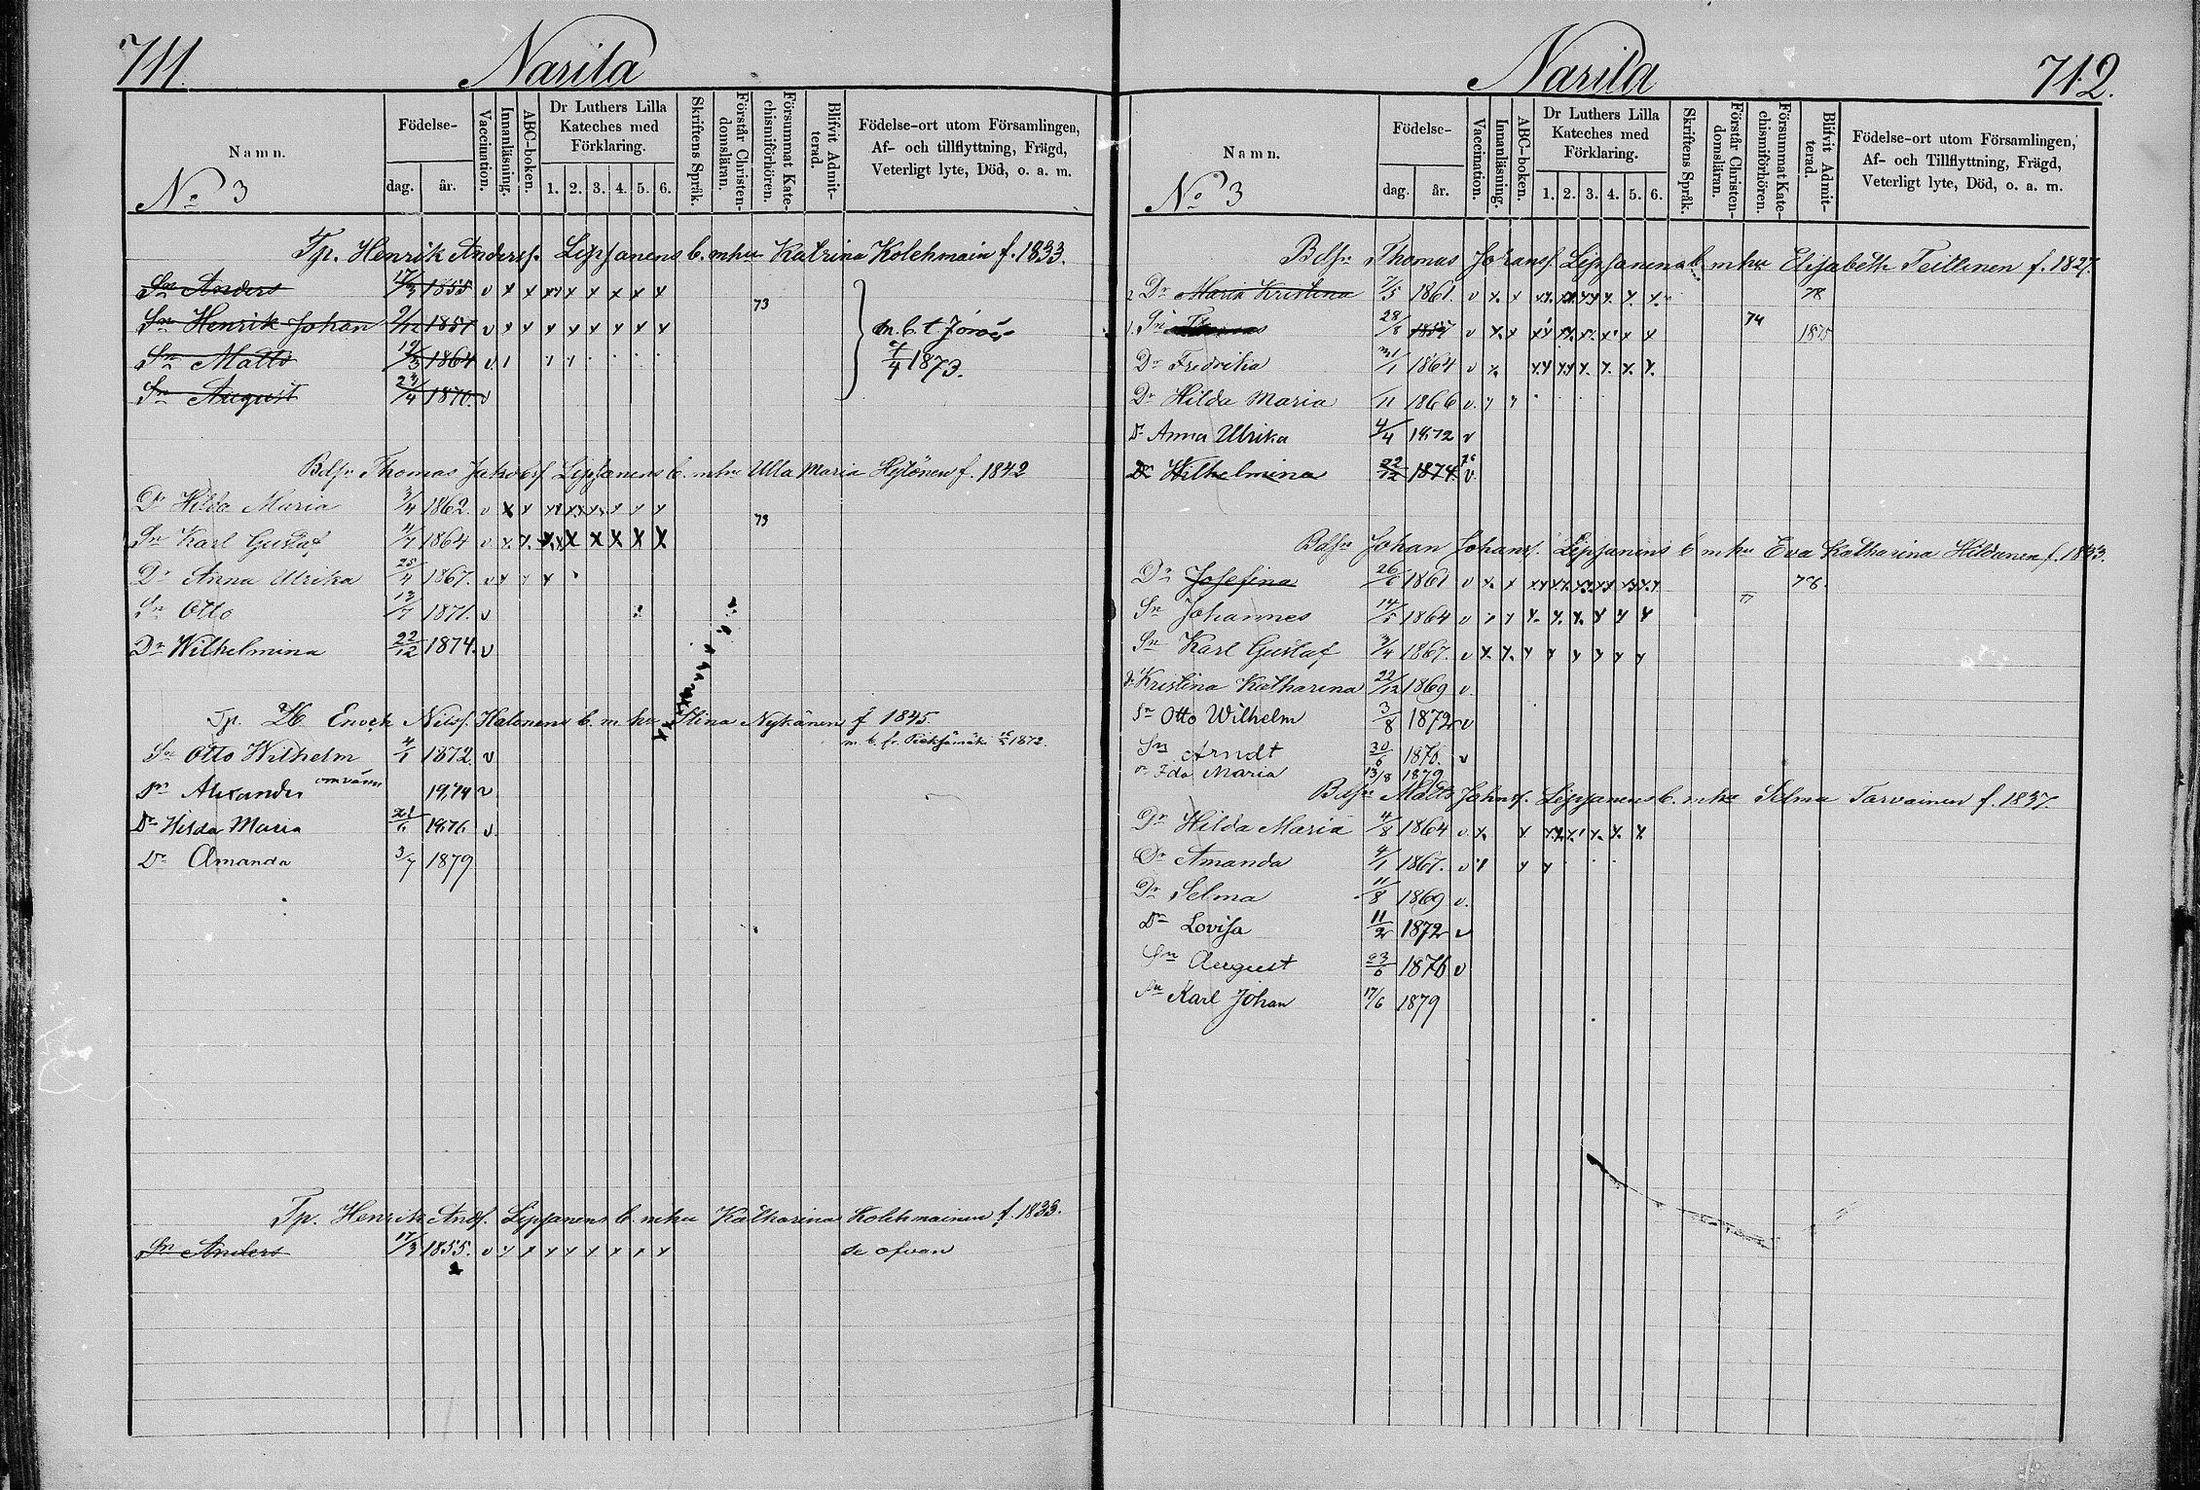 711.
Narila
Namn.
No 3
Födelse-
dag.
år.
Vaccination.
Innanläsning.
ABC-boken.
Dr Luthers Lilla
Kateches med
Förklaring.
1. 2. 3. 4. 5. 6.
Skriftens Språk.
Förstår Christen-
domsläran.
Försummat Kate-
chismiförhören.
Blifvit Admit-
terad.
Födelse-ort utom Församlingen,
Af- och tillflyttning, Frägd,
Veterligt lyte, Död, o. a. m.
Tp. Henrik Anderss. Lipsanens b. m hu Katrina Kolehmain f. 1833.
Sn Anders 17/3 1855 v x x x x x x x x
73
Sn Henrik Johan 2/12 1857 v x x x x x x x x m. b. t. Jorois
Sn Matts 1864 v 7/4 1873.
Sn August 23/4 1870. v
Bdsr Thomas Jakobss. Lipsanens b. m hu Ulla Maria Hytönen f. 1842
Dr Hilda Maria 3/4 1862. v x x
73
Sn Karl Gustaf 1864 v x x x x x x x x
Dr Anna Ulrika 25/4 1867. v x x x
Sn Otto 13/7 1871. v
Dr Wilhelmina 22/12 1874. v
Tp. Enoch Nilss. Halonens b. m hu Stina Nykänen f 1845.
m. b. fr. Pieksämäki 1872.
Sn Otto Wilhelm 4/1 1872. v
Sn Alexander 1874 v
Dr Hilda Maria 21/6 1876 v
Dr Amanda 3/7 1879
Tp. Henrik Ands. Lipsanens b. m hu Katharina Kolehmainen f. 1833.
Sn Anders 17/3 1855. v x x x x x x x x se ofvan
Narila
712.
Namn.
No 3
Födelse-
dag.
år.
Vaccination.
Innanläsning.
ABC-boken.
Dr Luthers Lilla
Kateches med
Förklaring.
1. 2. 3. 4. 5. 6.
Skriftens Språk.
Förstår Christen-
domsläran.
Försummat Kate-
chismiförhören.
Blifvit Admit-
terad.
Födelse-ort utom Församlingen,
Af- och Tillflyttning, Frägd,
Veterligt lyte, Död, o. a. m.
Bdsr Thomas Johanss. Lipsanens b. m hu Elisabeth Teittinen f. 1827.
2 Dr Maria Kristina 7/5 1861. v x x 78
1. Sn Thomas 28/8 1857 v x x 74 1875
Dr Fredrika 31/1 1864 v x
Dr Hilda Maria 1866 v
Dr Anna Ulrika 4/4 1872 v
Dr Wilhelmina 22/12 1874. v
Bdsr Johan Johanss. Lipsanens b m hu Eva Katharina f. 1833.
Dr Josefina 1861 v x x 78.
Sn Johannes 14/5 1864 v x x x x x x x x
Sn Karl Gustaf 3/4 1867. v x x x x x x x x
Dr Kristina Katharina 22/12 1869 v.
Sn Otto Wilhelm 3/8 1872 v
Sn Arndt 30/6 1876. v
Dr Ida Maria 13/8 1879
Bdsr Matts Johnss. Lipsanens b. m hu Selma Tarvainen f. 1837.
Dr Hilda Maria 4/8 1864 v. x
Dr Amanda 4/1 1867. v
Dr Selma 11/8 1869 v.
Dr Lovisa 11/2 1872 v
Sn August 23/6 1876 v
Sn Karl Johan 17/6 1879